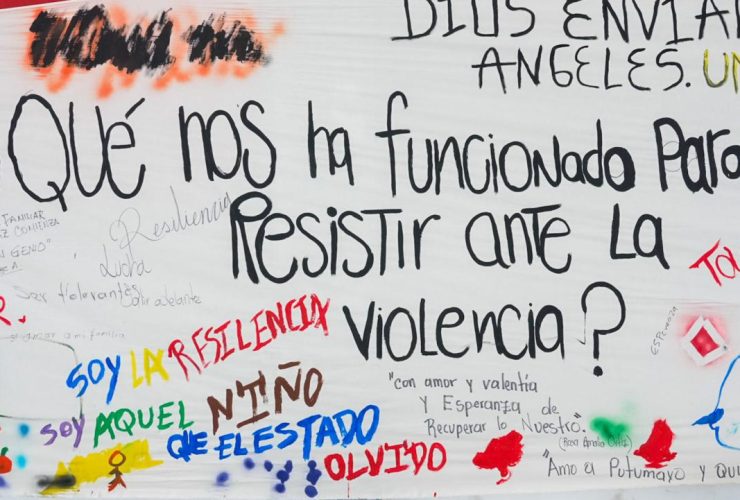 DIOS ENVIAR
ANGELES. UN
Qué nos ha funcionado para
Resistir ante la
violencia?
FAMILIAR
COMIENZA
GENIO"
Resiliencia
Lucha
Ser tolerantes
Salir adelante
a mi familia
SOY LA RESILENCIA
SOY AQUEL NIÑO
QUE EL ESTADO
OLVIDO
"con amor y valentía
y Esperanza de
Recuperar lo Nuestro".
(Rosa Amalia Ortiz)
"Amo el Putumayo y qui
ESPERANZA